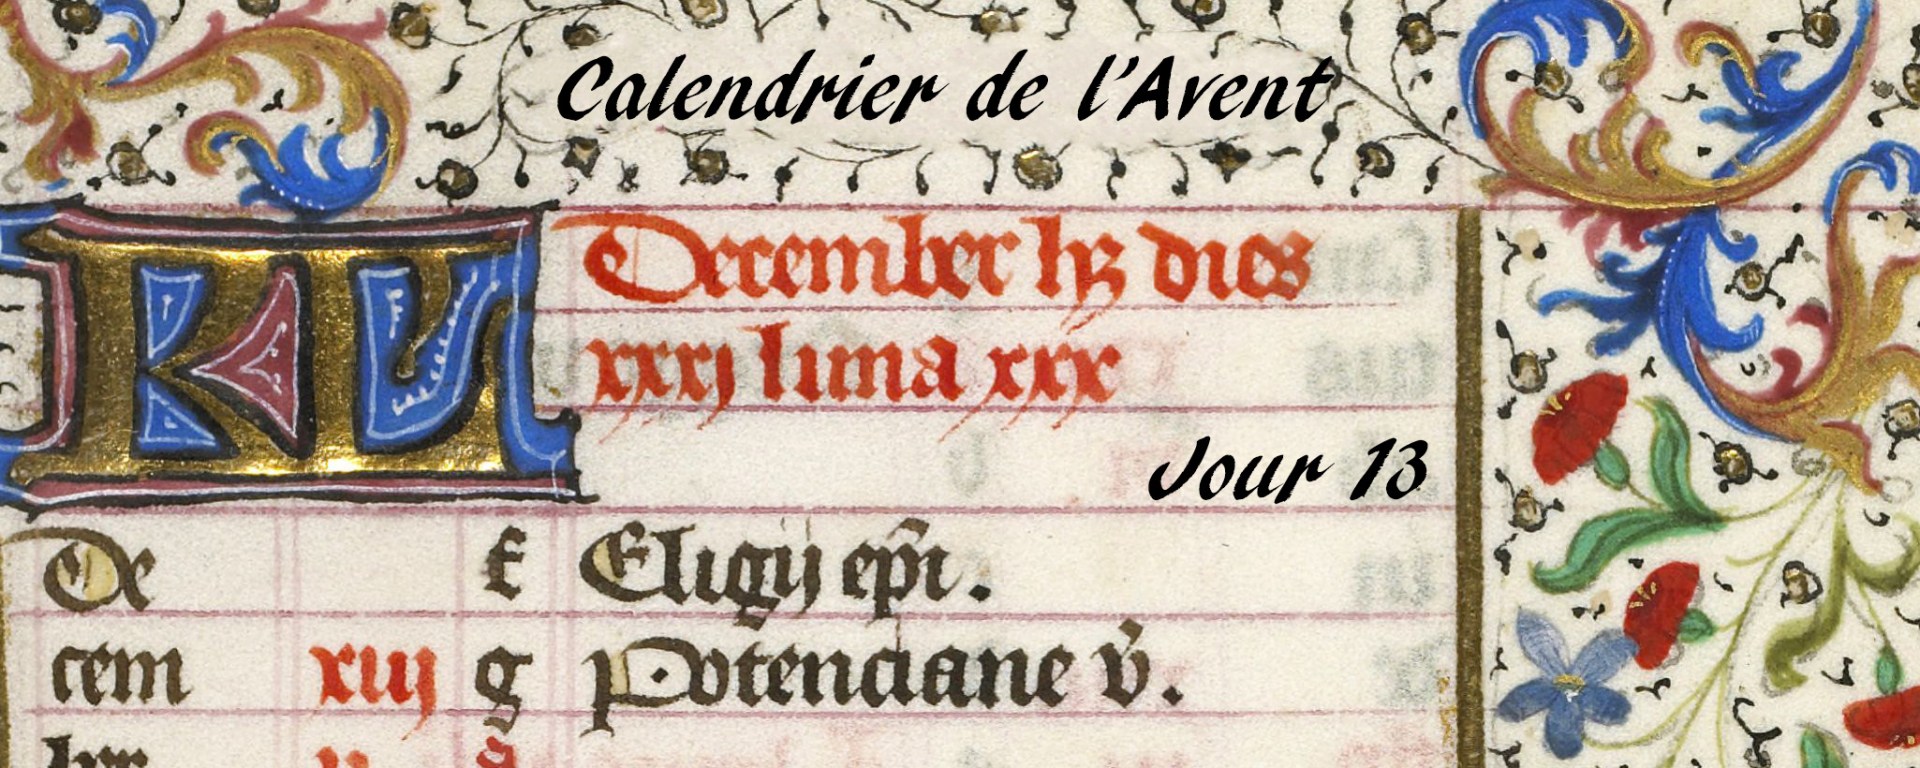 Calendrier de l'Avent
KL December hȝ dies
xxxj luna xxx
Jour 13
De f Eligij epi.
cem xiij g Potenciane v.